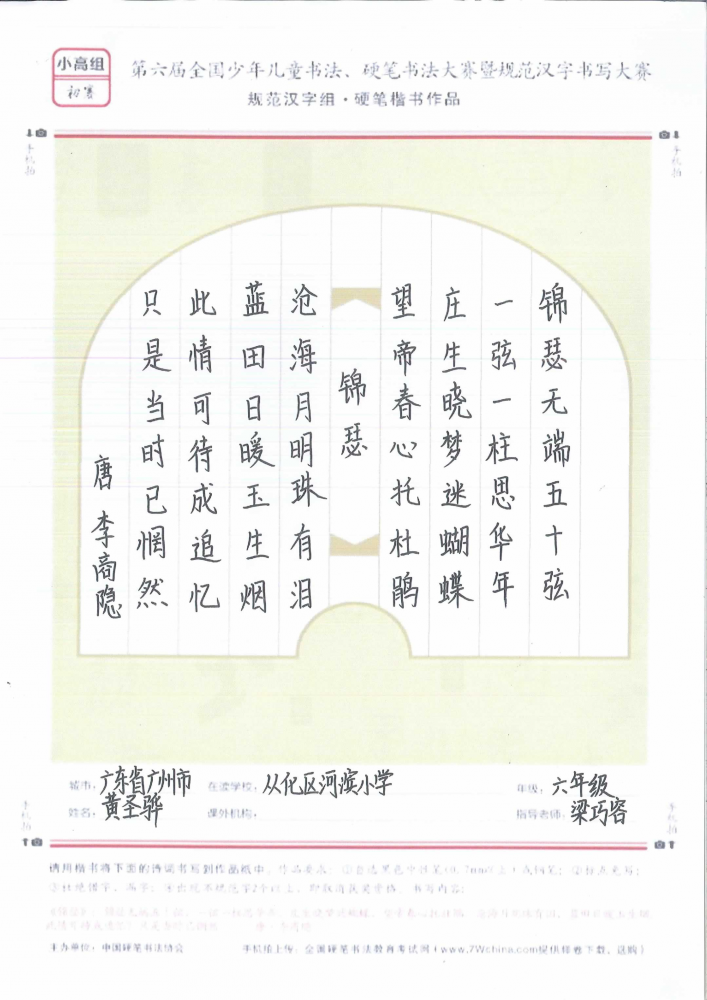 小高组
初赛
第六届全国少年儿童书法、硬笔书法大赛暨规范汉字书写大赛
规范汉字组·硬笔楷书作品
手机拍
手机拍
锦瑟无端五十弦
一弦一柱思华年
庄生晓梦迷蝴蝶
望帝春心托杜鹃
锦瑟
沧海月明珠有泪
蓝田日暖玉生烟
此情可待成追忆
只是当时已惘然
唐 李商隐
城市：广东省广州市 在读学校：从化区河滨小学 年级：六年级
姓名：黄圣骅 课外机构： 指导老师：梁巧容
手机拍
手机拍
请用楷书将下面的诗词书写到作品纸中。作品要求：
主办单位：中国硬笔书法协会 手机拍上传：全国硬笔书法教育考试网（www.7Wchina.com提供样卷下载、选购）